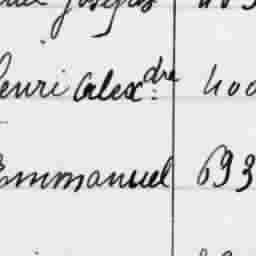 Joseph
Henri Alex.dre 400
Emmanuel 693